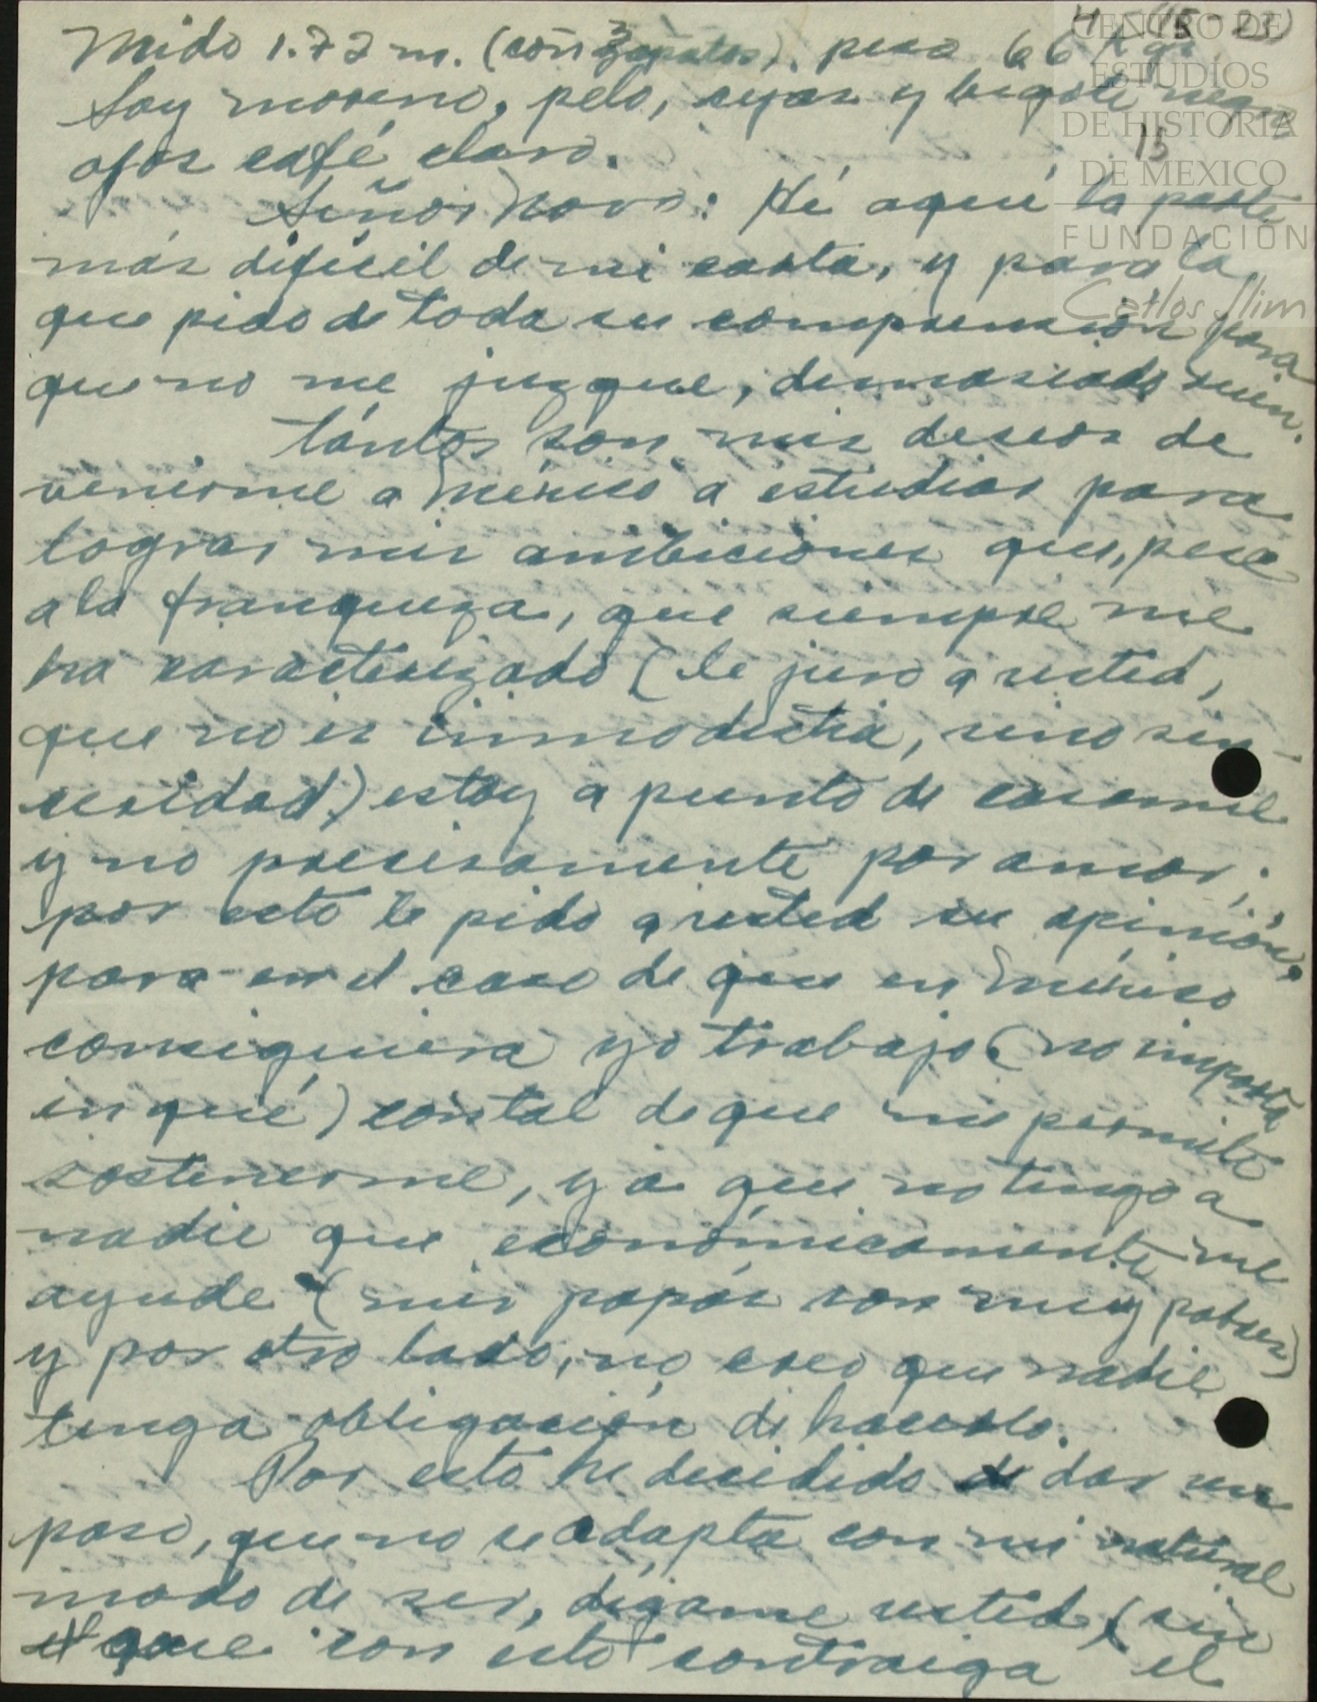 Mido 1.72 m. (con zapatos), peso 66 Kgs.
Soy moreno, pelo, cejas y bigote negro
ojos café claro.
15
CENTRO DE
ESTUDIOS
DE HISTORIA
DE MEXICO
FUNDACIÓN
Carlos Slim
Señor Novo: Hé aquí la parte
más difícil de mi carta, y para la
que pido de toda su comprensión para
que no me juzgue, demasiado ruin.
Tántos son mis deseos de
venirme a México a estudiar para
lograr mis ambiciones que, pese
a la franqueza, que siempre me
ha caracterizado (le juro a usted,
que no es inmodestia, sino sin-
ceridad) estoy a punto de casarme
y no precisamente por amor;
por esto le pido a usted su opinión,
para en el caso de que en México
consiguiera yo trabajo (no importa
en qué) con tal de que me permita
sostenerme, ya que no tengo a
nadie que económicamente me
ayude (mis papás son muy pobres)
y por otro lado, no creo que nadie
tenga obligación de hacerlo.
Por esto he decidido dar un
paso, que no se adapta con mi natural
modo de ser, dígame usted (sin
que con ésto contraiga el